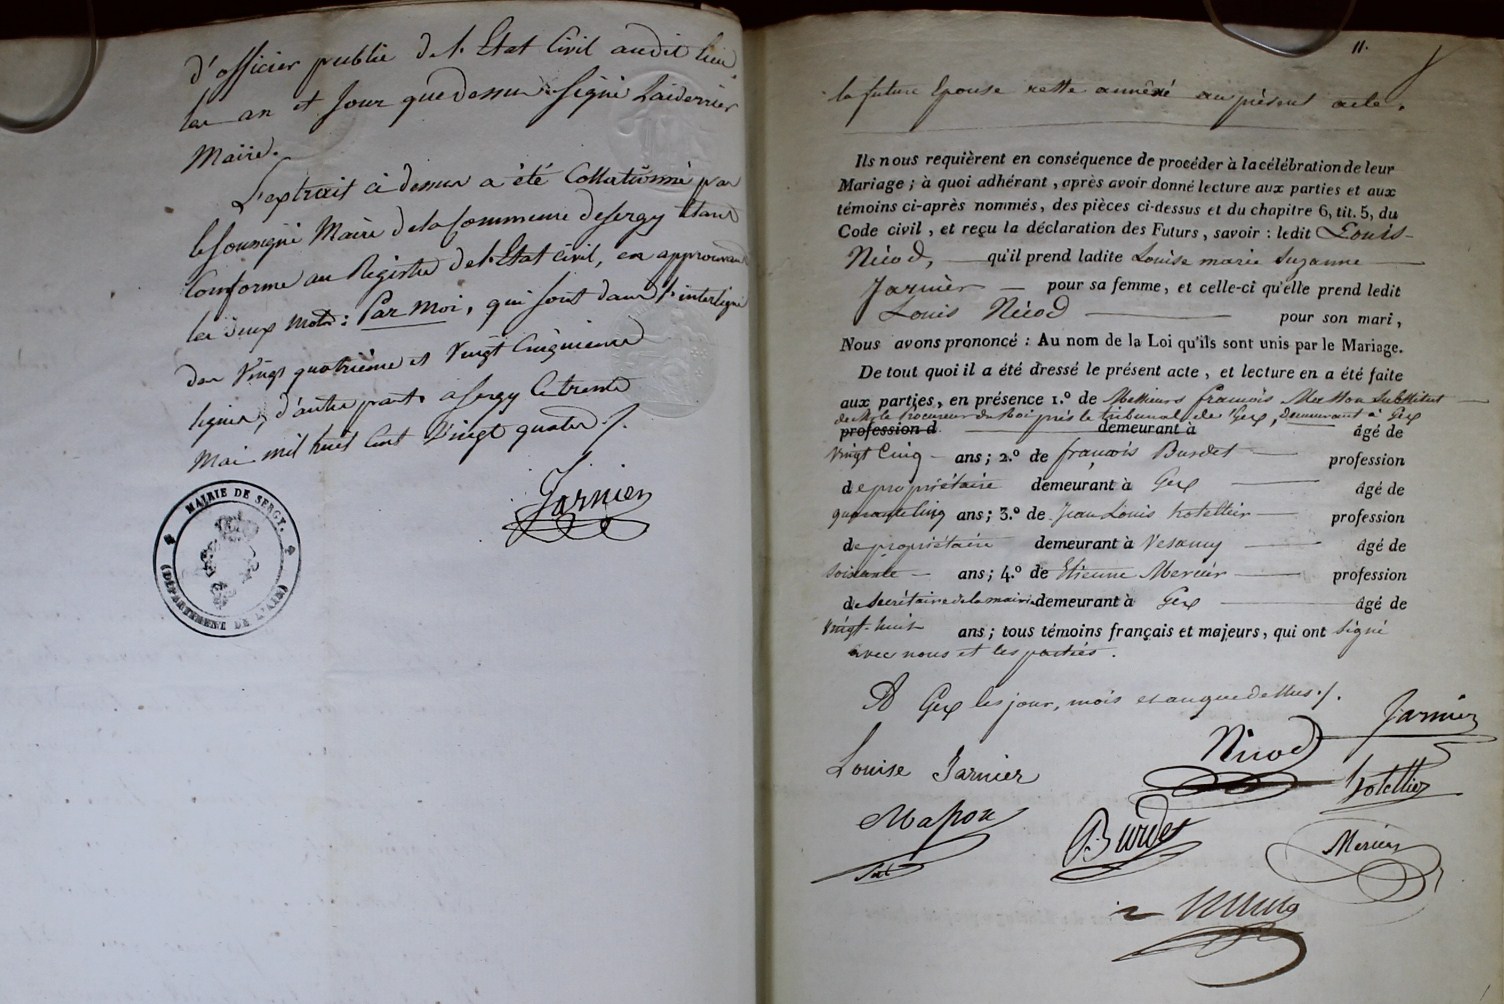 d'officier public de l'Etat Civil audit lieu
les an et Jour que dessus. Signé Laiderrier
Maire.
L'extrait ci dessus a été Collationné par
le soussigné Maire de la Commune de Sergy étant
Conforme au Registre de l'Etat Civil, en approuvant
les deux mots: Par Moi, qui sont dans l'interligne
des Vingt quatrième et Vingt Cinquième
lignes, d'autre part. à Sergy le trente
Mai mil huit Cent Vingt quatre ./.
Jarnier
MAIRIE DE SERGY.
(DÉPARTEMENT DE L'AIN)
11.
la future Epouse reste annexé au présent acte.
Ils nous requièrent en conséquence de procéder à la célébration de leur
Mariage ; à quoi adhérant , après avoir donné lecture aux parties et aux
témoins ci-après nommés, des pièces ci-dessus et du chapitre 6, tit. 5, du
Code civil , et reçu la déclaration des Futurs , savoir : ledit Louis
Nicod, qu'il prend ladite Louise marie Suzanne
Jarnier pour sa femme, et celle-ci qu'elle prend ledit
Louis Nicod pour son mari ,
Nous avons prononcé : Au nom de la Loi qu'ils sont unis par le Mariage.
De tout quoi il a été dressé le présent acte , et lecture en a été faite
aux parties, en présence 1.º de Messieurs françois Masson Substitut
de Mr le Procureur du Roi près le tribunal de Gex, demeurant à Gex
profession d demeurant à âgé de
vingt Cinq ans ; 2.º de françois Burdet profession
de propriétaire demeurant à Gex âgé de
quarante Cinq ans ; 3.º de Jean Louis hotellier profession
de propriétaire demeurant à Vesancy âgé de
soixante ans ; 4.º de Etienne Mercier profession
de Secrétaire de la mairie demeurant à Gex âgé de
vingt-huit ans ; tous témoins français et majeurs, qui ont signé
avec nous et les parties.
A Gex les jour, mois et an que dessus ./.
Jarnier
Nicod
Louise Jarnier
hotellier
Masson
Burdet
Mercier